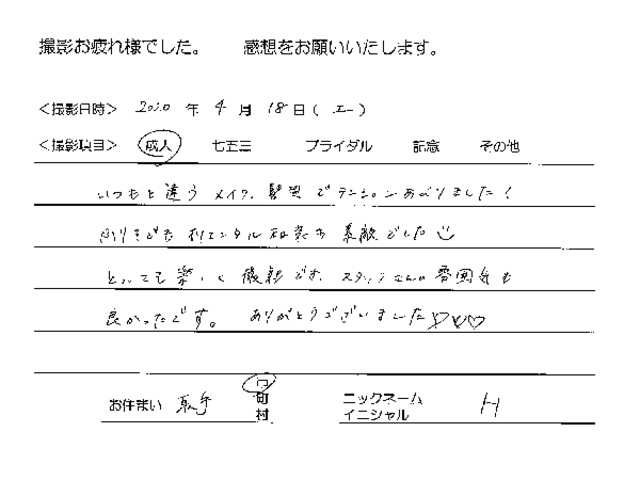 撮影お疲れ様でした。 感想をお願いいたします。
<撮影日時> 2010 年 4 月 18 日(土)
<撮影項目> 成人 七五三 ブライダル 記念 その他
いつもと違う メイク、髪型 でテンションあがりました!
素敵でした
とっても楽しく 撮影 です。スタッフさんの雰囲気も
良かったです。 ありがとうございました♡♡♡
お住まい 取手 市
町
村
ニックネーム
イニシャル H